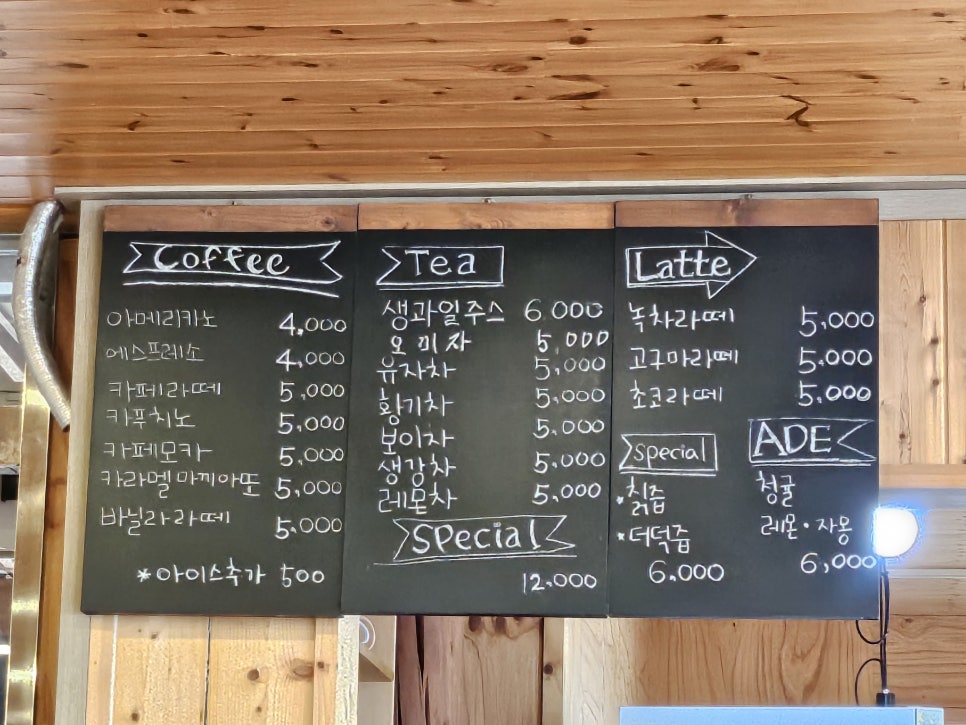 Coffee
아메리카노 4,000
에스프레소 4,000
카페라떼 5,000
카푸치노 5,000
카페모카 5,000
카라멜마끼아또 5,000
바닐라라떼 5,000
*아이스추가 500
Tea
생과일주스 6.000
오미자 5,000
유자차 5,000
황기차 5,000
보이차 5,000
생강차 5,000
레몬차 5,000
SPecial
12,000
Latte
녹차라떼 5,000
고구마라떼 5,000
초코라떼 5,000
Special
*칡즙
*더덕즙
6.000
ADE
청귤
레몬·자몽
6,000